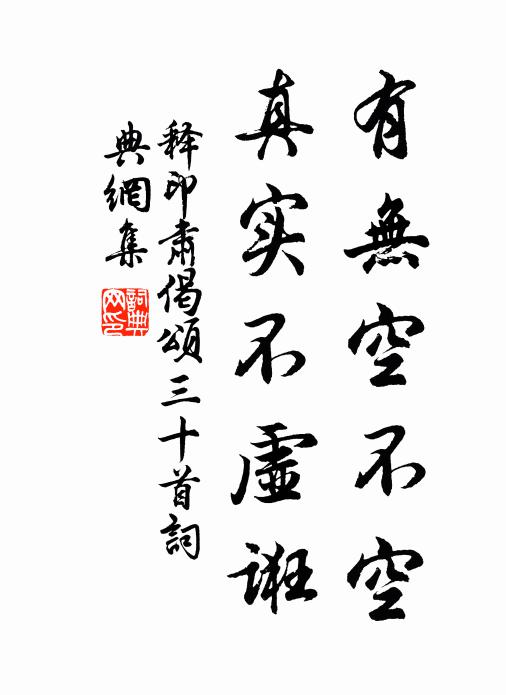 有無空不空
真实不虛誑
释印肃偈頌三十首詞
典網集
詞典
网印